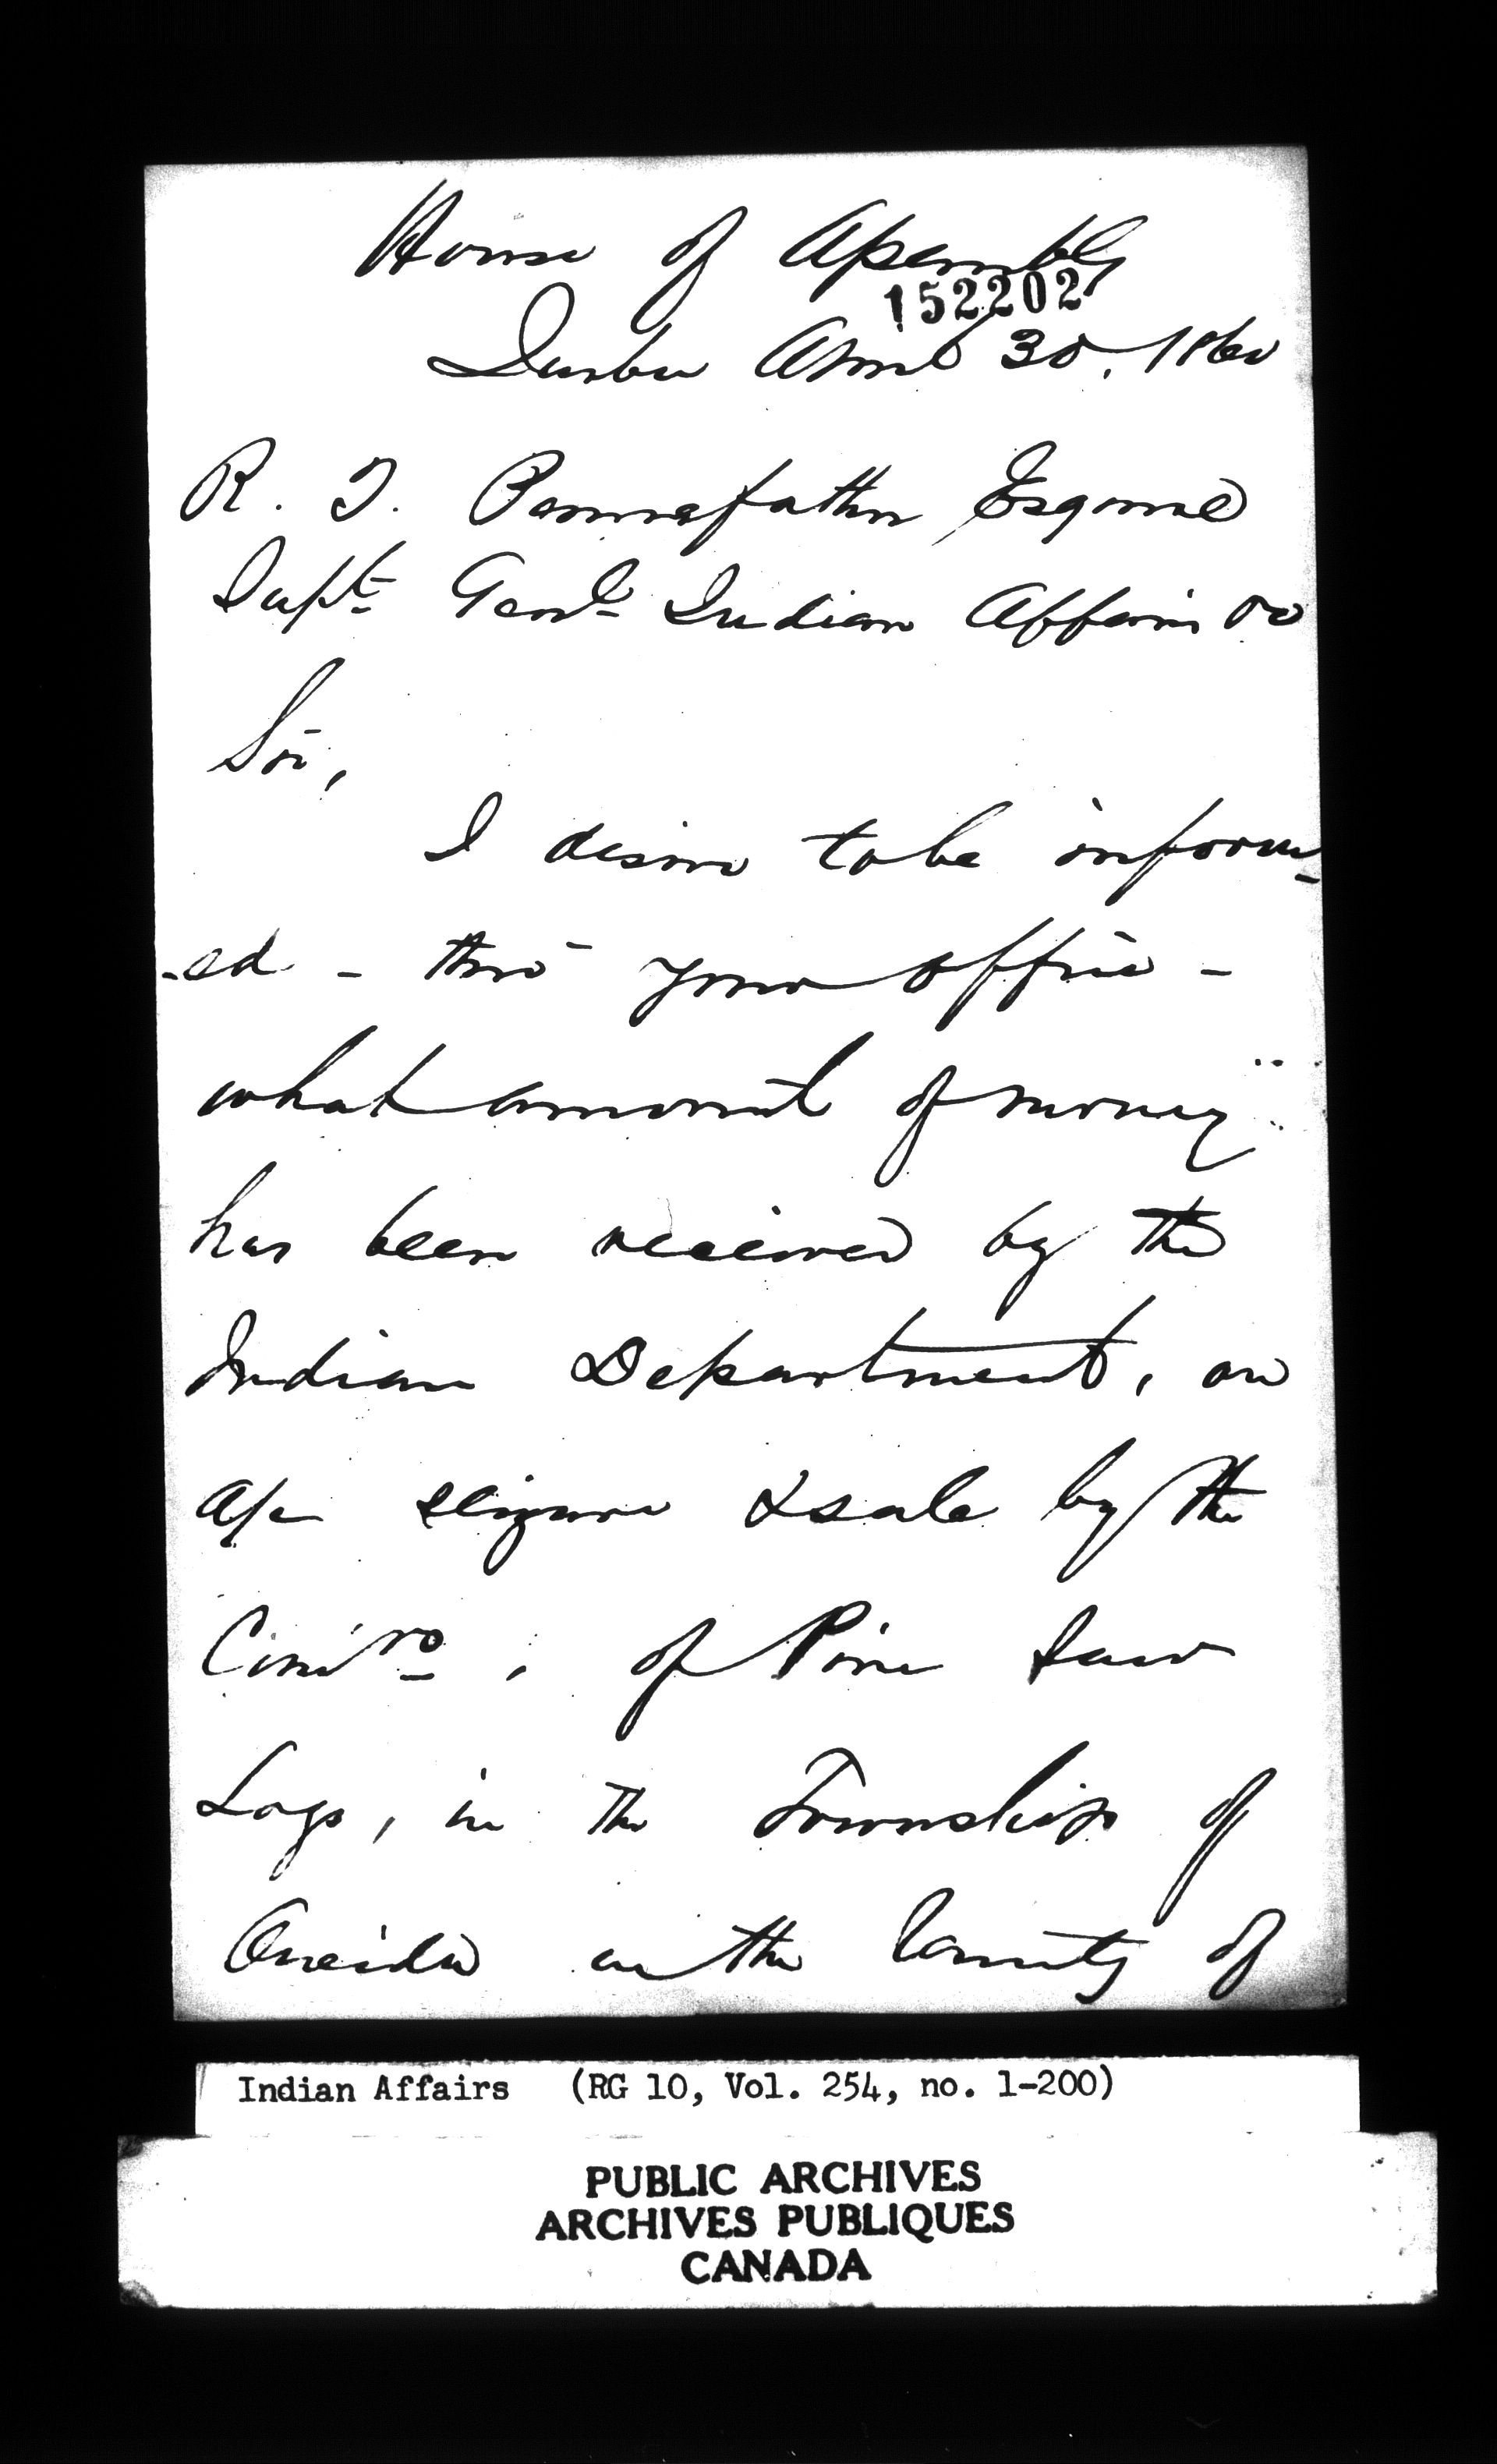 House of Assembly
152202
Quebec April 30, 1860
R. T. Pennefather Esquire
Supt Genl Indian Affairs &c
Sir,
I desire to be inform-
-ed - thro' your office -
what amount of money
has been received by the
Indian Department, on
a/c seizure & sale by the
Comrs, of Pine Saw
Logs, in the Township of
Oneida in the County of
Indian Affairs (RG 10, Vol. 254, no. 1-200)
PUBLIC ARCHIVES
ARCHIVES PUBLIQUES
CANADA